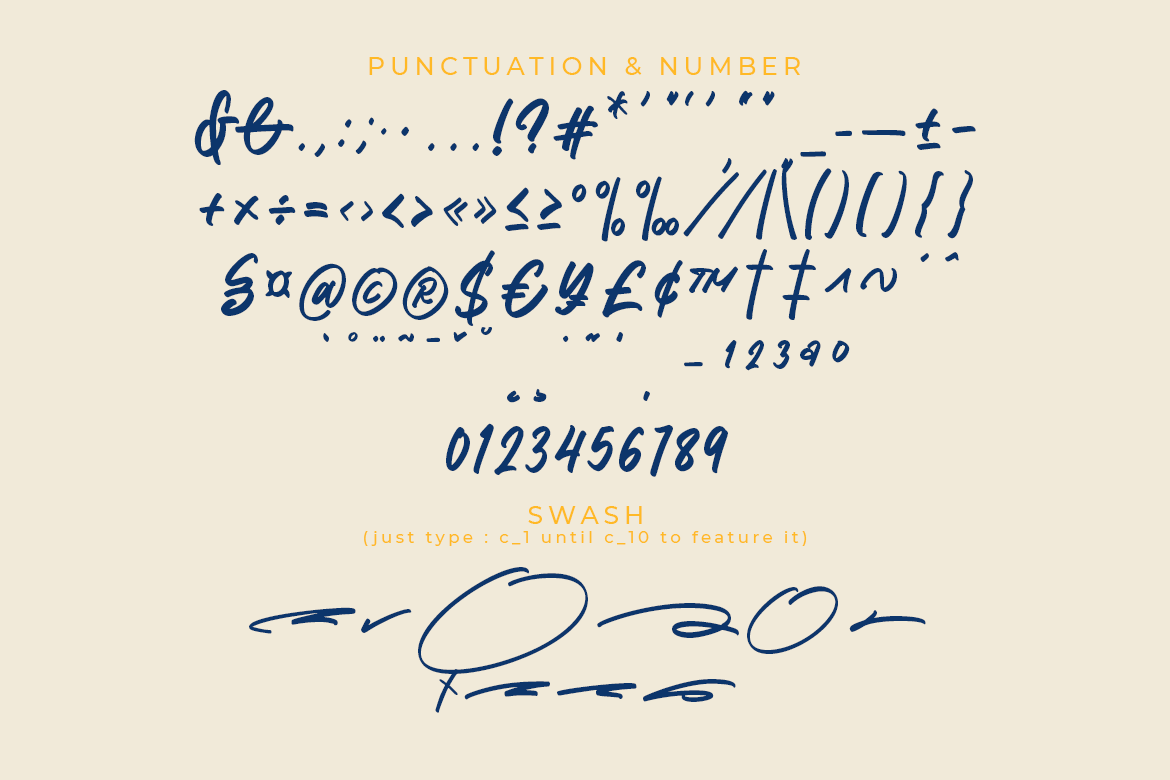 PUNCTUATION & NUMBER
& & . , : ; · · … ! ? # * ' " ‘ ’ “ ” _ - — ± –
+ × ÷ = ‹ › < > « » ≤ ≥ ° % ‰ ⁄ / | \ ( ) ( ) { }
§ ¤ @ © ® $ € ¥ £ ¢ ™ † ‡ ^ ~ ´ ˆ
` ° ¨ ~ ¯ ˇ ˘
_ 1 2 3 a o
0123456789
SWASH
(just type : c_1 until c_10 to feature it)